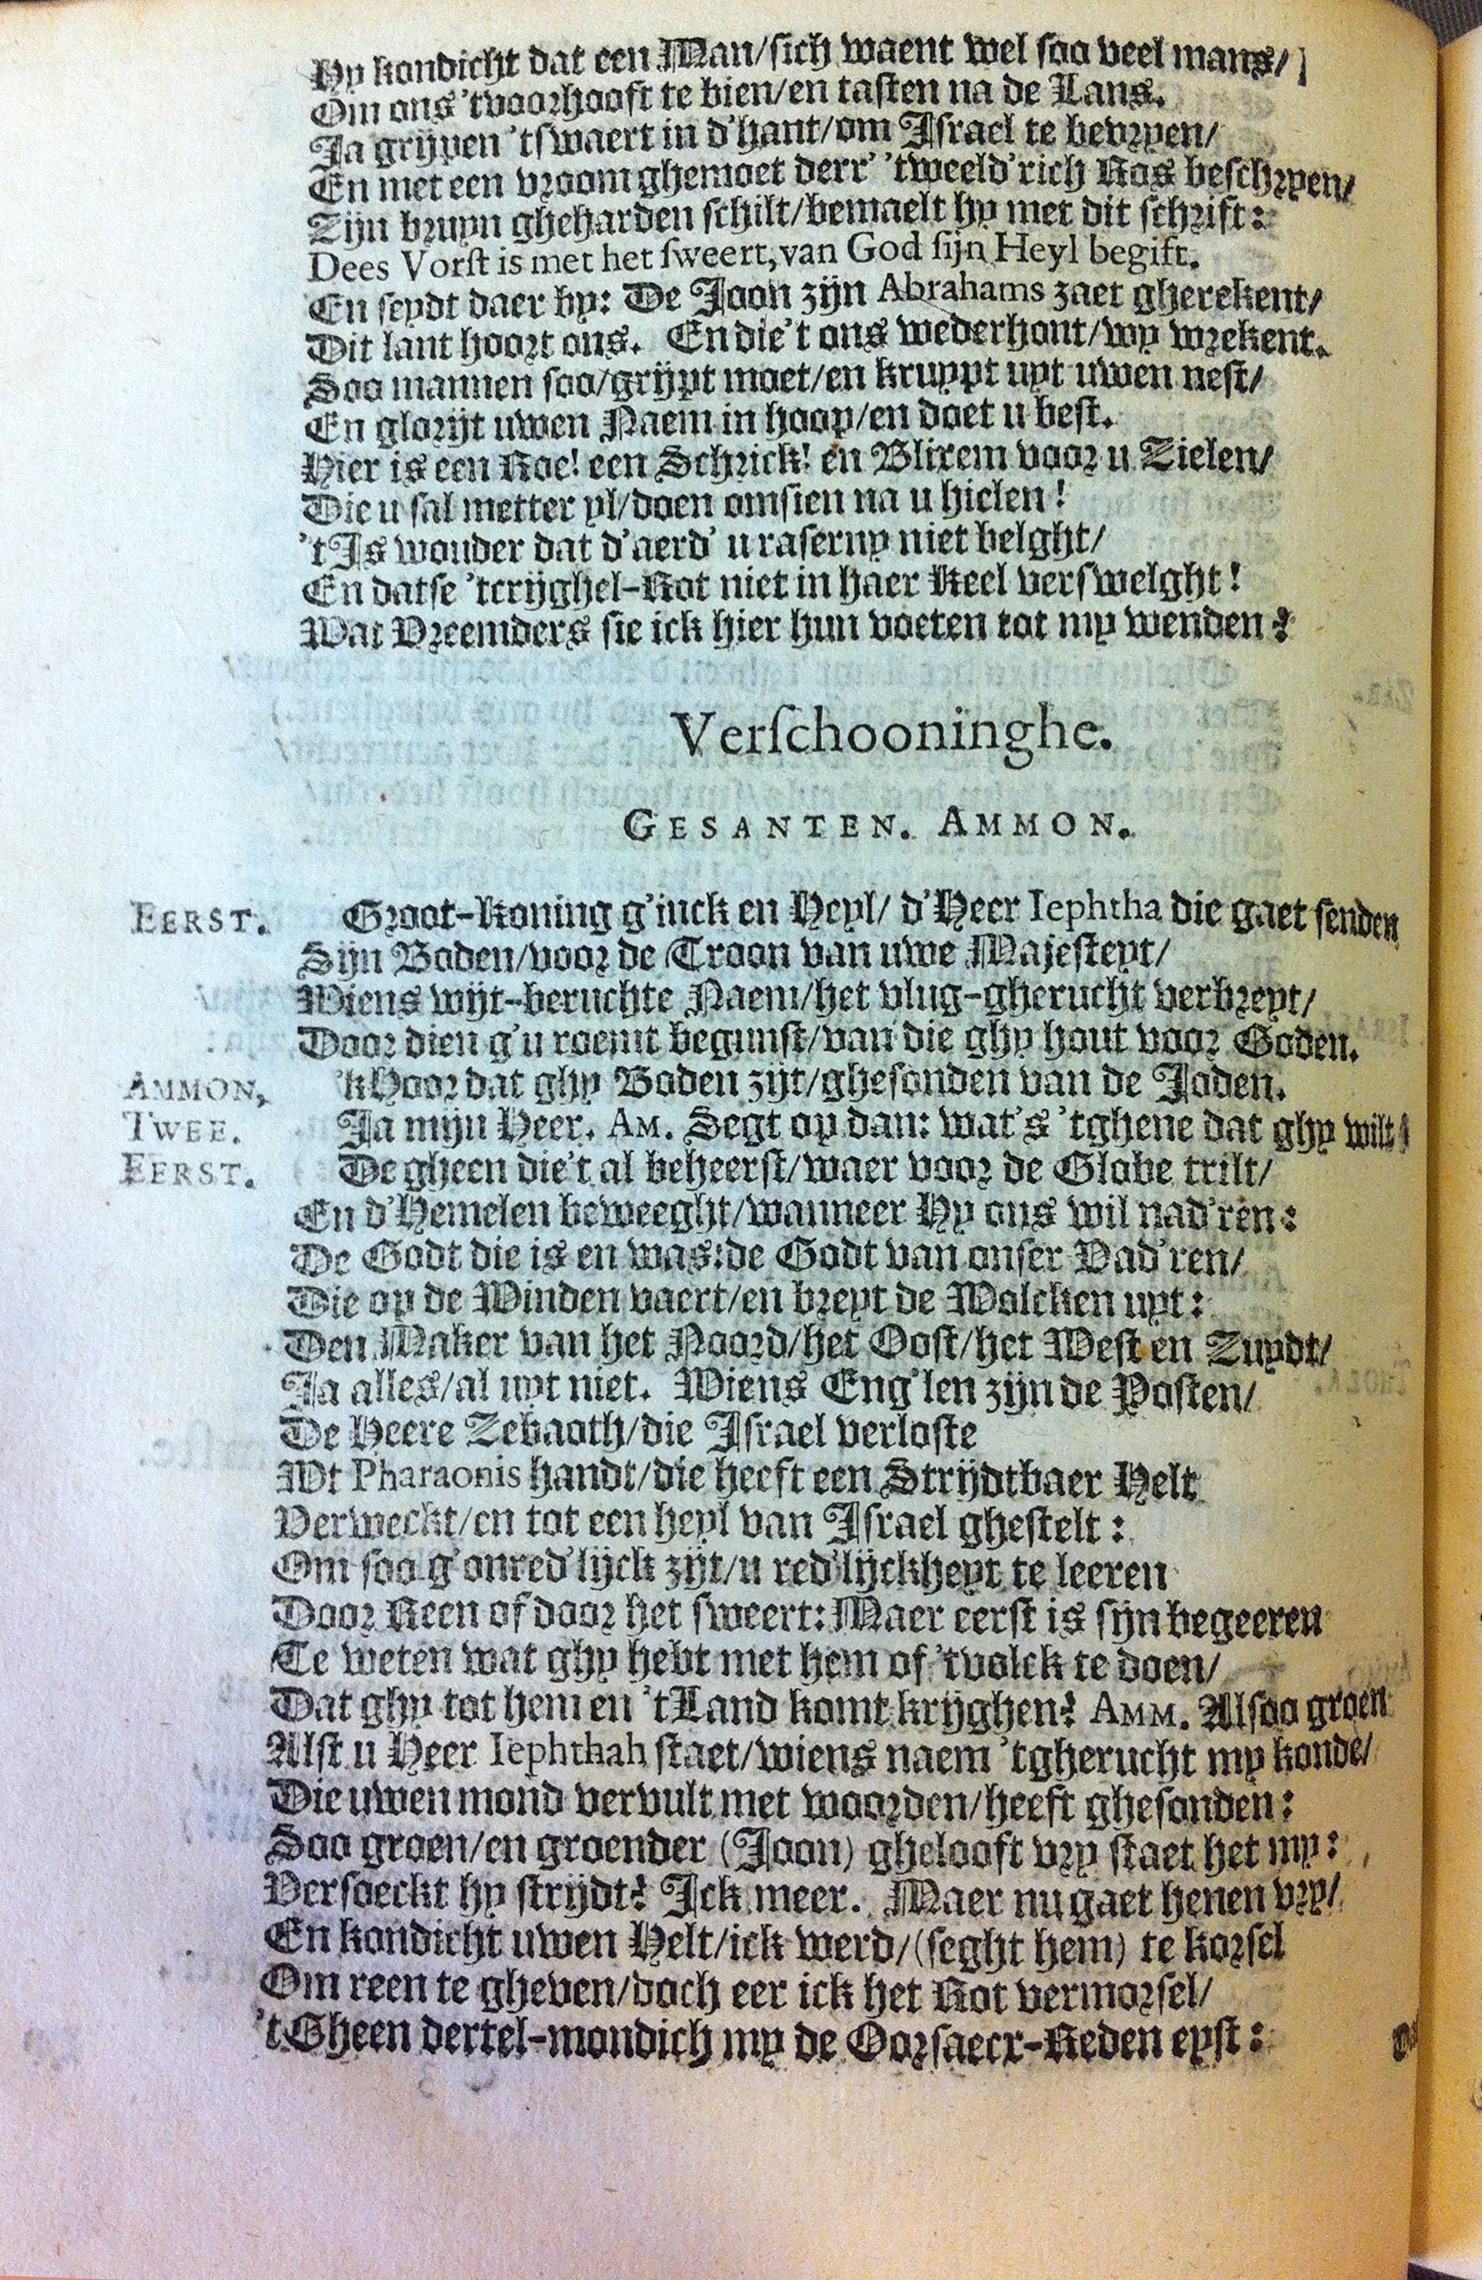 Hy kondicht dat een Man/sich waent wel soo veel mans/
Om ons 'tvoorhooft te bien/en tasten na de Lans.
Ja grijpen 'tswaert in d'hant/om Israel te bevryen/
En met een vroom ghemoet derr' 'tweeld'rich Ros beschryen/
Zijn bruyn gheharden schilt/bemaelt hy met dit schrift:
Dees Vorst is met het sweert, van God sijn Heyl begift.
En seydt daer by: De Joon zijn Abrahams zaet gherekent/
Dit lant hoort ons. En die't ons wederhont/wy wrekent.
Soo mannen soo/grijpt moet/en kruypt uyt uwen nest/
En glorijt uwen Naem in hoop/en doet u best.
Hier is een Roe! een Schrick! en Blixem voor u Zielen/
Die u sal metter yl/doen omsien na u hielen!
'tIs wonder dat d'aerd' u raserny niet belght/
En datse 'tcrijghel-Rot niet in haer Keel verswelght!
Wat Vreemders sie ick hier hun voeten tot my wenden?
Verschooninghe.
GESANTEN. AMMON.
EERST. Groot-Koning g'luck en Heyl/ d'Heer Iephtha die gaet senden
Sijn Boden/voor de Troon van uwe Majesteyt/
Wiens wijt-beruchte Naem/het vlug-gherucht verbreyt/
Door dien g'u roemt begunst/van die ghy hout voor Goden.
AMMON, 'k Hoor dat ghy Boden zijt/ghesonden van de Joden.
TWEE. Ja mijn Heer. AM. Segt op dan: wat's 'tghene dat ghy wilt?
EERST. De gheen die't al beheerst/waer voor de Globe trilt/
En d'Hemelen beweeght/wanneer Hy ons wil nad'ren:
De Godt die is en was:de Godt van onser Vad'ren/
Die op de Winden vaert/en breyt de Wolcken uyt:
Den Maker van het Noord/het Oost/het West en Zuydt/
Ja alles/al uyt niet. Wiens Eng'len zijn de Posten/
De Heere Zebaoth/die Israel verloste
Wt Pharaonis handt/die heeft een Strijdtbaer Helt
Verweckt/en tot een heyl van Israel ghestelt:
Om soo g'onred'lijck zijt/u red'lijckheyt te leeren
Door Reen of door het sweert: Maer eerst is sijn begeeren
Te weten wat ghy hebt met hem of 'tvolck te doen/
Dat ghy tot hem en 't Land komt krijghen? AMM. Alsoo groen
Alst u Heer Iephthah staet/wiens naem 'tgherucht my konde/
Die uwen mond vervult met woorden/heeft ghesonden:
Soo groen/en groender (Joon) ghelooft vry staet het my:
Versoeckt hy strijdt? Ick meer. Maer nu gaet henen vry/
En kondicht uwen Helt/ick werd/(seght hem) te korsel
Om reen te gheven/doch eer ick het Rot vermorsel/
't Gheen dertel-mondich my de Oorsaecx-Reden eyst: